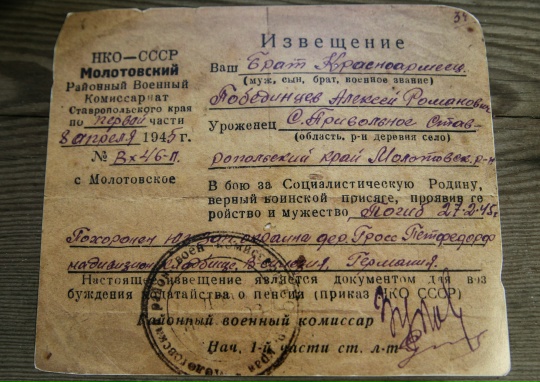 34
НКО—СССР
Молотовский
Районный Военный
Комиссариат
Ставропольского края
по первой части
8 апреля 1945 г.
№ Вх46-п.
с Молотовское
Извещение
Ваш Брат Красноармеец
(муж, сын, брат, военное звание)
Побединцев Алексей Романович
Уроженец с. Привольное Став-
(область, р-н деревня село)
ропольский край Молотовск. р-н
В бою за Социалистическую Родину,
верный воинской присяге, проявив ге
ройство и мужество Погиб 27-2-45г.
Похоронен юго-зап. окраина дер. Гросс Петфедорф
Германия.
Настоящее извещение является документом для воз
буждения ходатайства о пенсии (приказ НКО СССР)
Районный военный комиссар
Нач. 1-й части ст. л-т